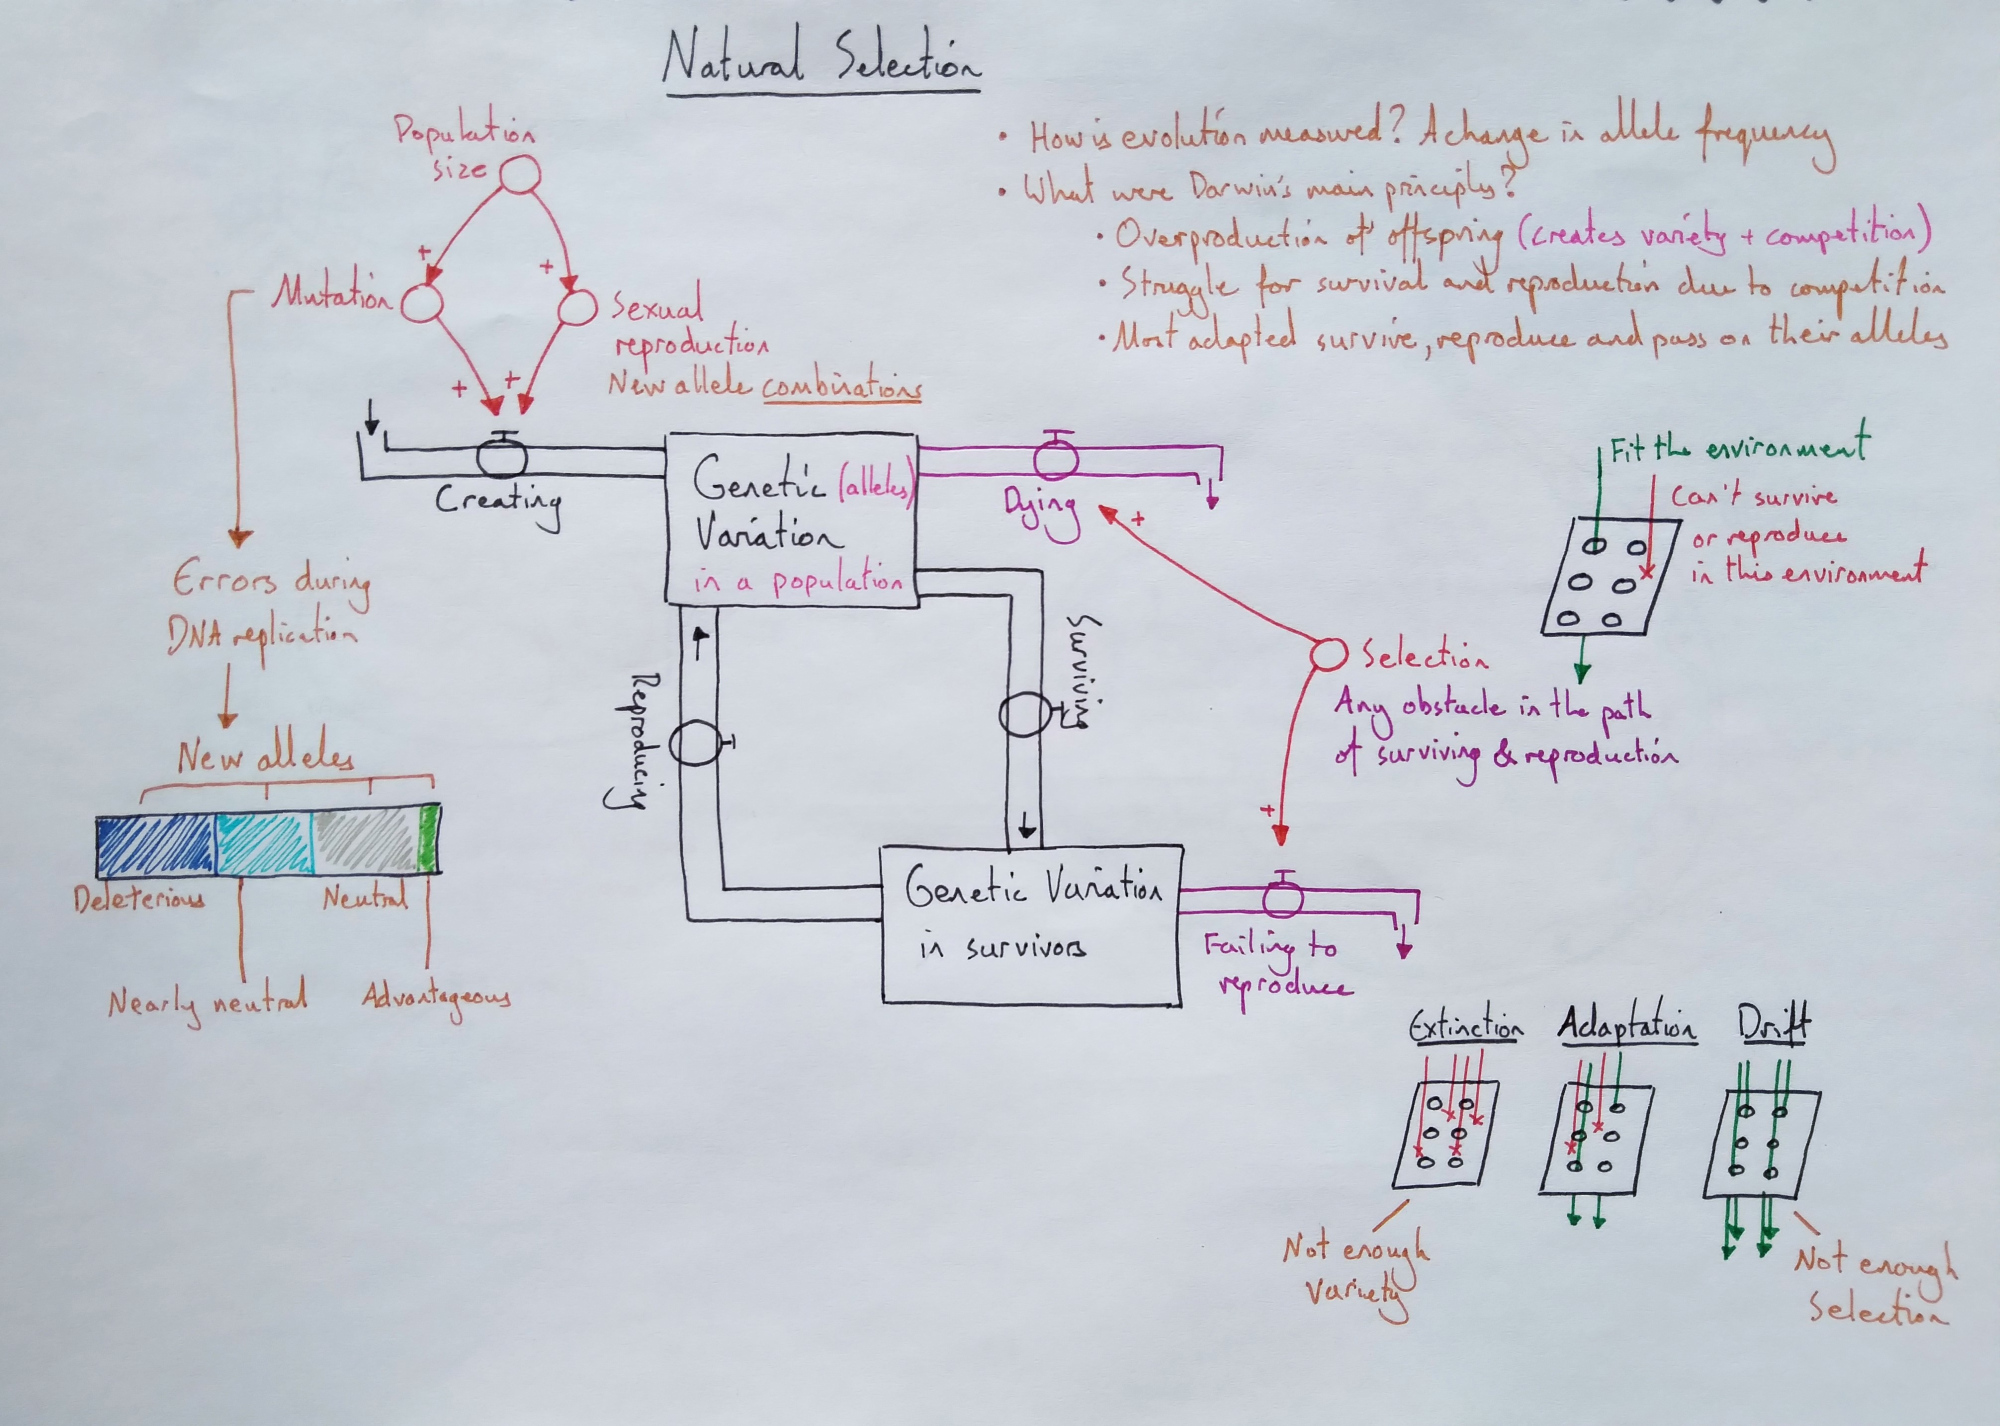 Natural Selection
Population
size
+
+
Mutation
Sexual
reproduction
New allele combinations
+
+
• How is evolution measured? A change in allele frequency
• What were Darwin's main principles?
• Overproduction of offspring (creates variety + competition)
• Struggle for survival and reproduction due to competition
• Most adapted survive, reproduce and pass on their alleles
Creating
Genetic (alleles)
Variation
in a population
Dying
+
Fit the environment
Can't survive
or reproduce
in this environment
Errors during
DNA replication
New alleles
Deleterious
Neutral
Nearly neutral
Advantageous
Reproducing
Surviving
Selection
Any obstacle in the path
of surviving & reproduction
+
Genetic Variation
in survivors
Failing to
reproduce
Extinction
Adaptation
Drift
Not enough
Variety
Not enough
Selection